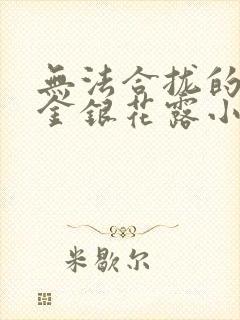 無法合拢的
金銀花露小
米歇尔